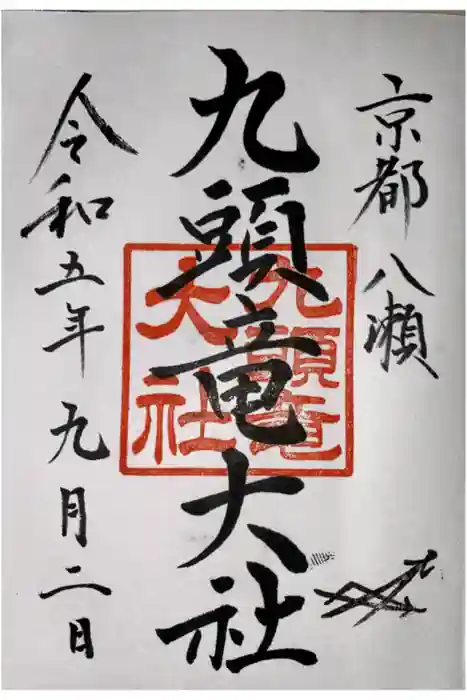 京都八瀬
九頭竜大社
九頭竜
大社
令和五年九月二日